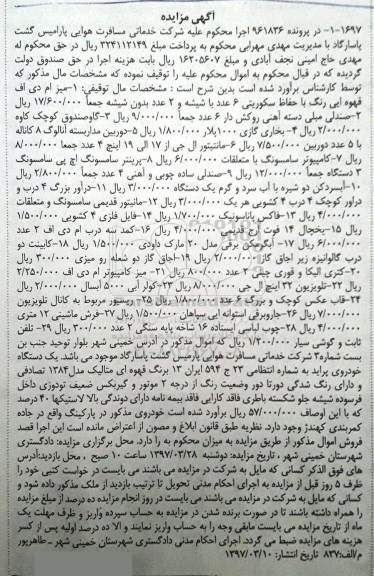 آگهی مزایده
۱۶۹۷-۱- در پرونده ۹۶۱۸۳۶ اجرا محکوم علیه شرکت خدماتی مسافرت هوایی پارامیس گشت
پاسارگاد با مدیریت مهدی مهرابی محکوم به پرداخت مبلغ ۳۲۴۱۱۲۱۴۹ ریال در حق محکوم له
مهدی حاج امینی نجف آبادی و مبلغ ۱۶۲۰۵۶۰۷ ریال بابت هزینه اجرا در حق صندوق دولت
گردیده که در قبال محکوم به اموال محکوم علیه را توقیف نموده که مشخصات مال مذکور که
توسط کارشناس برآورد شده است بدین شرح است : مشخصات مال توقیفی: ۱-میز ام دی اف
قهوه ایی رنگ با حفاظ سکوریتی ۶ عدد با شیشه و ۲ عدد بدون شیشه جمعاً ۱۷/۶۰۰/۰۰۰ ریال
۲-صندلی مبلی دسته آهنی روکش دار ۶ عدد جمعاً ۹/۰۰۰/۰۰۰ ریال ۳-گاوصندوق کوچک کاوه
۲/۰۰۰/۰۰۰ ریال ۴- بخاری گازی ۱۰۰۰پلار ۱/۸۰۰/۰۰۰ ریال ۵-دوربین مداربسته آنالوگ ۸ کاناله
با ۵ عدد دوربین ۷/۵۰۰/۰۰۰ ریال ۶-مانیتور ال جی از ۱۷ الی ۱۹ اینچ ۴ عدد جمعاً ۸/۰۰۰/۰۰۰
ریال ۷-کامپیوتر سامسونگ با متعلقات ۶/۰۰۰/۰۰۰ ریال ۸-پرینتر سامسونگ اچ پی سامسونگ
۳ دستگاه جمعاً ۱۲/۰۰۰/۰۰۰ ریال ۹-صندلی ساده چوبی و آهنی ۴ عدد جمعاً ۲/۸۰۰/۰۰۰ ریال
۱۰-آبسردکن دو شیره با آب سرد و گرم یک دستگاه ۳/۰۰۰/۰۰۰ ریال ۱۱-دراور بزرگ ۴ درب و
دراور کوچک ۴ درب ۴ کشویی هر یک ۳/۰۰۰/۰۰۰ ریال ۱۲-مانیتور قدیمی سامسونگ و متعلقات
۴/۰۰۰/۰۰۰ ریال ۱۳-فاکس پاناسونیک ۱/۷۰۰/۰۰۰ ریال ۱۴-فایل فلزی ۴ کشویی ۱/۵۰۰/۰۰۰
ریال ۱۵-یخچال ۱۴ فوت ارج قدیمی ۴/۰۰۰/۰۰۰ ریال ۱۶-کمد سه درب ام دی اف ۲ عدد
۶/۰۰۰/۰۰۰ ریال ۱۷-آبگرمکن برقی مدل ۲۰ مارک داودی ۱/۵۰۰/۰۰۰ ریال ۱۸-کابینت دو
درب گالوانیزه زیر اجاق گاز ۲/۰۰۰/۰۰۰ ریال ۱۹-اجاق گاز دو شعله رو میزی ۳۰۰/۰۰۰ ریال
۲۰-کتری الیکا و قوری چینی ۲ عدد ۸۰۰/۰۰۰ ریال ۲۱- میز کامپیوتر ام دی اف ۲/۲۵۰/۰۰۰
ریال ۲۲-تلویزیون ۳۲ اینچ ال جی ۸/۰۰۰/۰۰۰ ریال ۲۳-کولر آبی ۵۰۰۰ آبسال ۲/۰۰۰/۰۰۰ ریال
۲۴-قاب عکس کوچک و بزرگ ۶ عدد ۱/۸۰۰/۰۰۰ ریال ۲۵-رسیور مربوط به کانال تلویزیون
۷/۰۰۰/۰۰۰ ریال ۲۶-جاروبرقی استوانه ایی سپاهان ۱/۵۰۰/۰۰۰ ریال ۲۷-فرش ماشینی ۱۲ متری
۴/۰۰۰/۰۰۰ ریال ۲۸-چوب لباسی ایستاده ۱۶ شاخه پایه سنگی ۲ عدد ۳۰۰/۰۰۰ ریال ۲۹- تلفن
ثابت و گوشی سیار ۱/۲۰۰/۰۰۰ ریال که اموال مذکور در آدرس خمینی شهر بلوار توحید جنب بن
بست شماره۳ شرکت خدماتی مسافرت هوایی پارامیس گشت پاسارگاد موجود می باشد. یک دستگاه
خودروی پراید به شماره انتظامی ۲۳ ج ۵۹۴ ایران ۱۳ برنگ قهوه ای متالیک مدل۱۳۸۴ تصادفی
و دارای رنگ شدگی دورتا دور وضعیت رنگ از درجه ۲ موتور و گیربکس ضعیف تودوزی داخل
فرسوده شیشه جلو شکسته باطری فاقد کارایی فاقد بیمه نامه دارای دوندگی بالا لاستیکها ۴۰ درصد
که با این اوصاف ۵۷/۰۰۰/۰۰۰ ریال برآورد شده است خودروی مذکور در پارکینگ واقع در جاده
کمربندی کهندژ وجود دارد. نظریه طبق قانون ابلاغ و مصون از اعتراض مانده است این اجرا قصد
فروش اموال مذکور از طریق مزایده به میزان محکوم به را دارد. محل برگزاری مزایده: دادگستری
شهرستان خمینی شهر ، تاریخ مزایده: دوشنبه ۱۳۹۷/۰۳/۲۸ ساعت ۱۰ صبح ، محل بازدید:آدرس
های فوق الذکر کسانی که مایل به شرکت در مزایده می باشند می بایست در خواست کتبی خود را
ظرف ۵ روز قبل از مزایده به اجرای احکام مدنی تحویل تا ترتیب بازدید از ملک مذکور داده شود و
کسانی که مایل به شرکت در مزایده می باشند می بایست در روز انجام مزایده ده درصد از مبلغ مزایده
را همراه داشته باشند تا در صورت برنده شدن در مزایده به حساب سپرده واریز و ظرف مهلت یک
ماه از تاریخ مزایده می بایست مابقی وجه را به حساب واریز نمایند و الا ده درصد اولیه پس از کسر
هزینه های مزایده ضبط می گردد. اجرای احکام مدنی دادگستری شهرستان خمینی شهر ـ طاهرپور
م/الف:۸۳۷ تاریخ انتشار: ۱۳۹۷/۰۳/۱۰